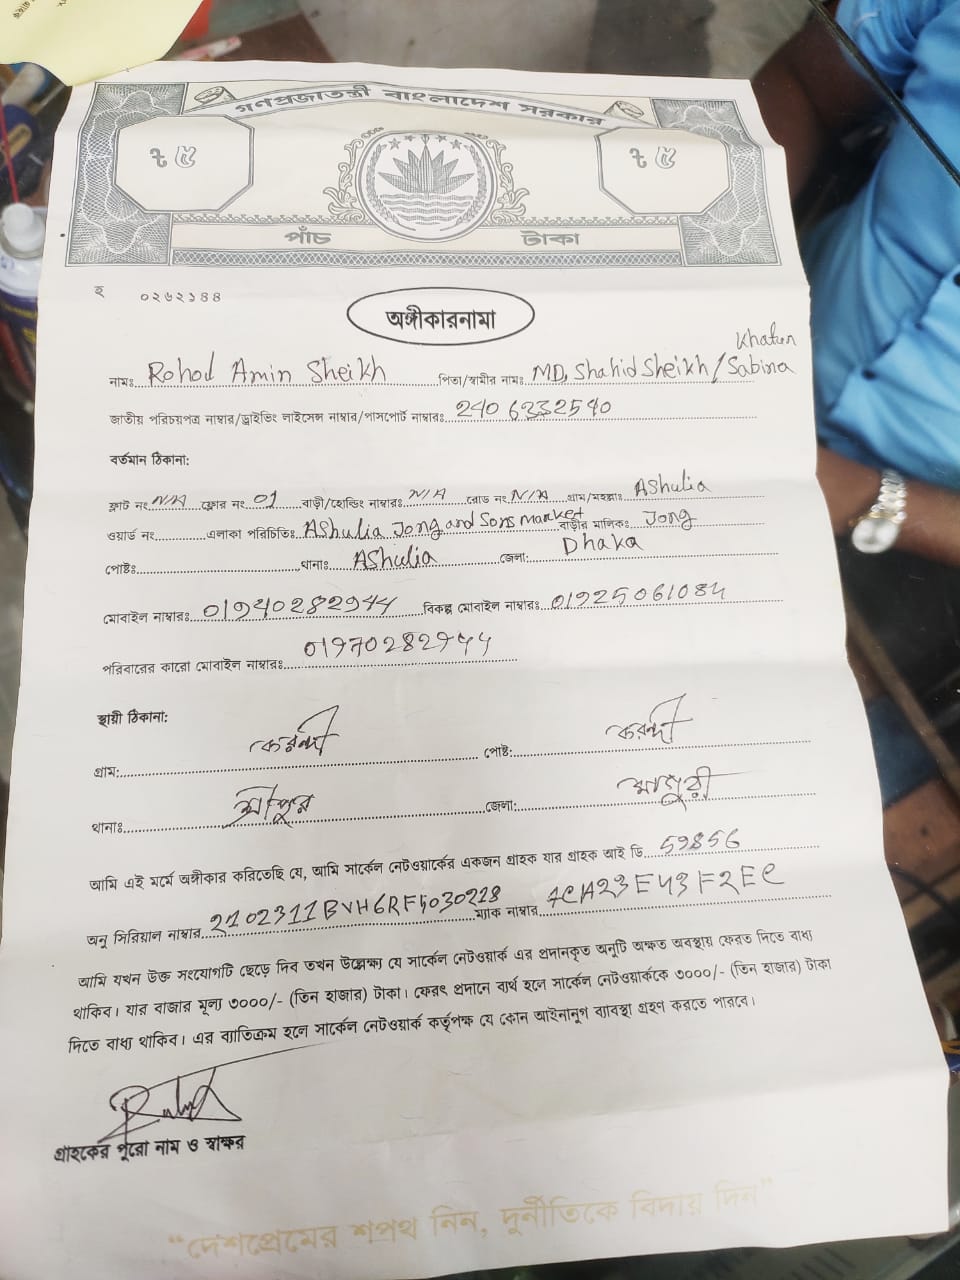 গণপ্রজাতন্ত্রী বাংলাদেশ সরকার
৳ ৫ ৳ ৫
পাঁচ টাকা
হ ০২৬২১৪৪
অঙ্গীকারনামা
Khatun
নামঃ Rohod Amin Sheikh পিতা/স্বামীর নামঃ MD, Shahid Sheikh / Sabina
জাতীয় পরিচয়পত্র নাম্বার/ড্রাইভিং লাইসেন্স নাম্বার/পাসপোর্ট নাম্বারঃ 2406332540
বর্তমান ঠিকানা:
ফ্লাট নং N/A ফ্লোর নং 01 বাড়ী/হোল্ডিং নাম্বারঃ N/A রোড নং N/A গ্রাম/মহল্লাঃ AShulia
ওয়ার্ড নং এলাকা পরিচিতিঃ AShulia Jong and Sons market বাড়ীর মালিকঃ Jong
পোষ্টঃ থানাঃ AShulia জেলা: Dhaka
মোবাইল নাম্বারঃ 01940282944 বিকল্প মোবাইল নাম্বারঃ 01925061084
পরিবারের কারো মোবাইল নাম্বারঃ 01970282944
স্থায়ী ঠিকানা:
গ্রাম: করন্দী পোষ্ট: করন্দী
থানাঃ শ্রীপুর জেলা: মাগুরা
আমি এই মর্মে অঙ্গীকার করিতেছি যে, আমি সার্কেল নেটওয়ার্কের একজন গ্রাহক যার গ্রাহক আই ডি 59856
অনু সিরিয়াল নাম্বার 2102311BVH6RF5030218 ম্যাক নাম্বার 7CA23E43F2EC
আমি যখন উক্ত সংযোগটি ছেড়ে দিব তখন উল্লেক্ষ্য যে সার্কেল নেটওয়ার্ক এর প্রদানকৃত অনুটি অক্ষত অবস্থায় ফেরত দিতে বাধ্য
থাকিব। যার বাজার মূল্য ৩০০০/- (তিন হাজার) টাকা। ফেরৎ প্রদানে ব্যর্থ হলে সার্কেল নেটওয়ার্ককে ৩০০০/- (তিন হাজার) টাকা
দিতে বাধ্য থাকিব। এর ব্যাতিক্রম হলে সার্কেল নেটওয়ার্ক কর্তৃপক্ষ যে কোন আইনানুগ ব্যাবস্থা গ্রহণ করতে পারবে।
গ্রাহকের পুরো নাম ও স্বাক্ষর
“দেশপ্রেমের শপথ নিন, দুর্নীতিকে বিদায় দিন”